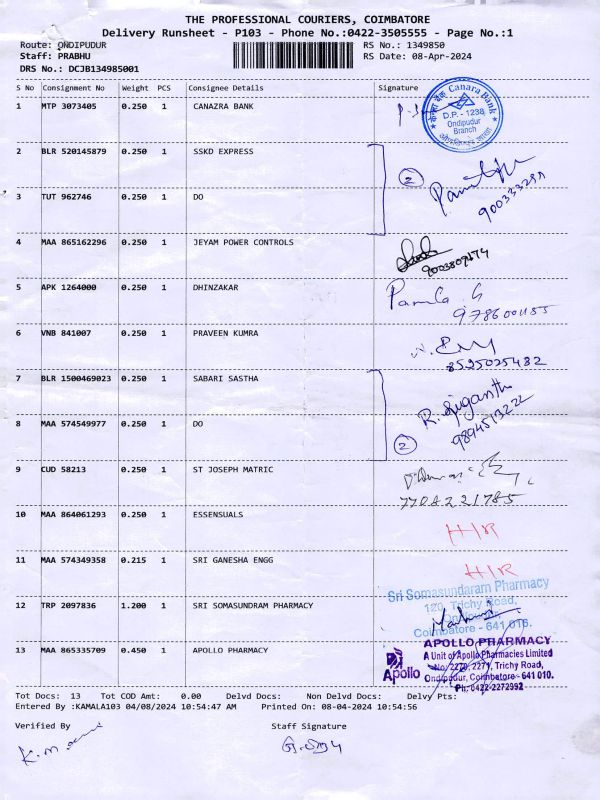 THE PROFESSIONAL COURIERS, COIMBATORE
Delivery Runsheet - P103 - Phone No.:0422-3505555 - Page No.:1
Route: ONDIPUDUR RS No.: 1349850
Staff: PRABHU RS Date: 08-Apr-2024
DRS No.: DCJB134985001
S No Consignment No Weight PCS Consignee Details Signature
1 MTP 3073405 0.250 1 CANAZRA BANK
Canara Bank
D.P. - 1238
Ondipudur
Branch
2 BLR 520145879 0.250 1 SSKD EXPRESS
2
3 TUT 962746 0.250 1 DO
4 MAA 865162296 0.250 1 JEYAM POWER CONTROLS
5 APK 1264000 0.250 1 DHINZAKAR
6 VNB 841007 0.250 1 PRAVEEN KUMRA
8525025482
7 BLR 1500469023 0.250 1 SABARI SASTHA
9894513222
8 MAA 574549977 0.250 1 DO
2
9 CUD 58213 0.250 1 ST JOSEPH MATRIC
7708221785
10 MAA 864061293 0.250 1 ESSENSUALS
H/R
11 MAA 574349358 0.215 1 SRI GANESHA ENGG
H/R
Sri Somasundaram Pharmacy
120, Trichy Road,
12 TRP 2097836 1.200 1 SRI SOMASUNDRAM PHARMACY
Coimbatore - 641 016.
13 MAA 865335709 0.450 1 APOLLO PHARMACY
APOLLO PHARMACY
A Unit of Apollo Pharmacies Limited
No: 2270, 2271, Trichy Road,
Apollo Ondipudur, Coimbatore - 641 010.
Ph: 0422-2272992
Tot Docs: 13 Tot COD Amt: 0.00 Delvd Docs: Non Delvd Docs: Delvy Pts:
Entered By :KAMALA103 04/08/2024 10:54:47 AM Printed On: 08-04-2024 10:54:56
Verified By Staff Signature